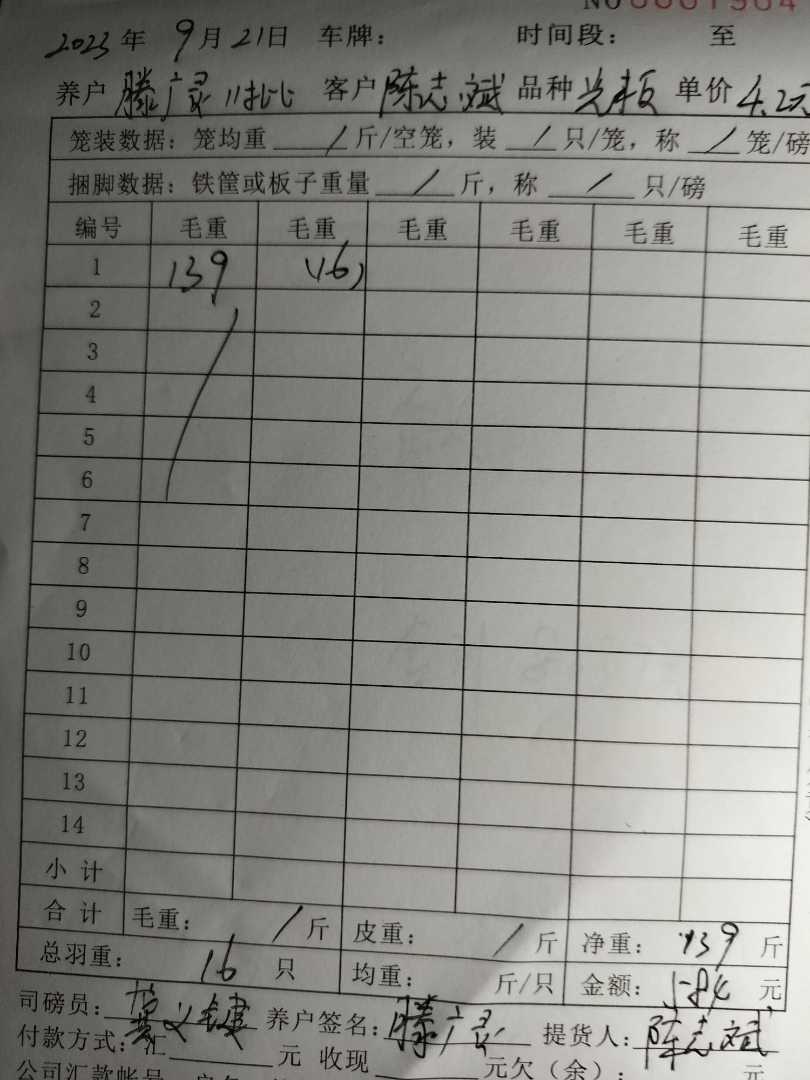 NO 0001964
2023年 9月21日 车牌： 时间段： 至
养户 滕广灵11批 客户 陈志斌 品种 单价 4.2元
笼装数据：笼均重 / 斤/空笼，装 / 只/笼，称 / 笼/磅
捆脚数据：铁筐或板子重量 / 斤，称 / 只/磅
编号 毛重 毛重 毛重 毛重 毛重 毛重
1 139 (16)
2
3
4
5
6
7
8
9
10
11
12
13
14
小计
合计 毛重： / 斤 皮重： / 斤 净重： 139 斤
总羽重： 16 只 均重： 斤/只 金额： 584 元
司磅员： 养户签名： 滕广灵 提货人： 陈志斌
付款方式：汇 元 收现 元欠（余）： 元
公司汇款帐号